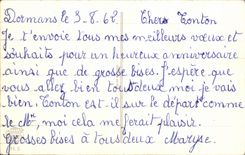 Dormans le 3.8.68 Chers Tonton
Je t'envoie tous mes meilleurs vœux et
souhaits pour un heureux anniversaire
ainsi que de grosse bises. J'espère que
vous allez bien tous deux moi je vais
bien. Tonton est-il sur le départ comme
le Mr, moi cela me ferait plaisir.
grosses bises à tous deux Maryse.